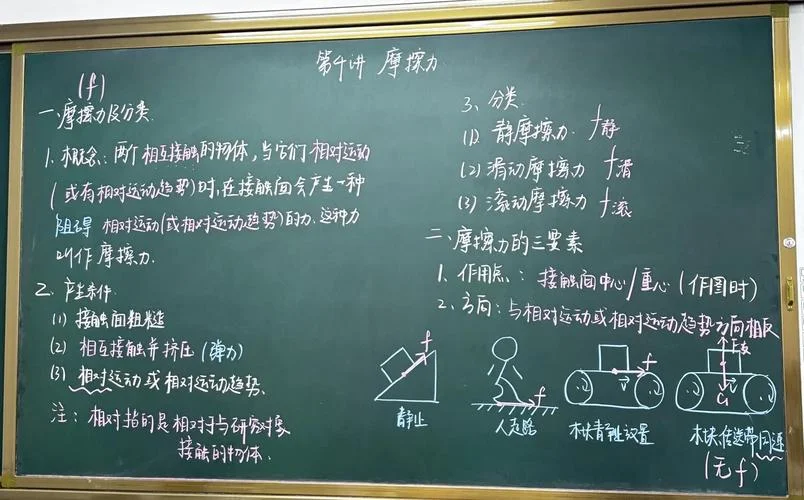 第4讲 摩擦力
(f)
一、摩擦力及分类
1、概念：两个相互接触的物体，当它们相对运动
(或有相对运动趋势)时，在接触面会产生一种
阻碍相对运动(或相对运动趋势)的力，这种力
叫作摩擦力.
2、产生条件.
(1) 接触面粗糙
(2) 相互接触并挤压 (弹力)
(3) 相对运动或相对运动趋势、
注：相对指的是相对于与研究对象
接触的物体.
3、分类
(1) 静摩擦力 f静
(2) 滑动摩擦力 f滑
(3) 滚动摩擦力 f滚
二、摩擦力的三要素
1、作用点：接触面中心/重心(作图时)
2、方向：与相对运动或相对运动趋势方向相反
f
静止
f
人走路
f
V
木块静止放置
F支
V
G
木块、传送带同速
(无f)